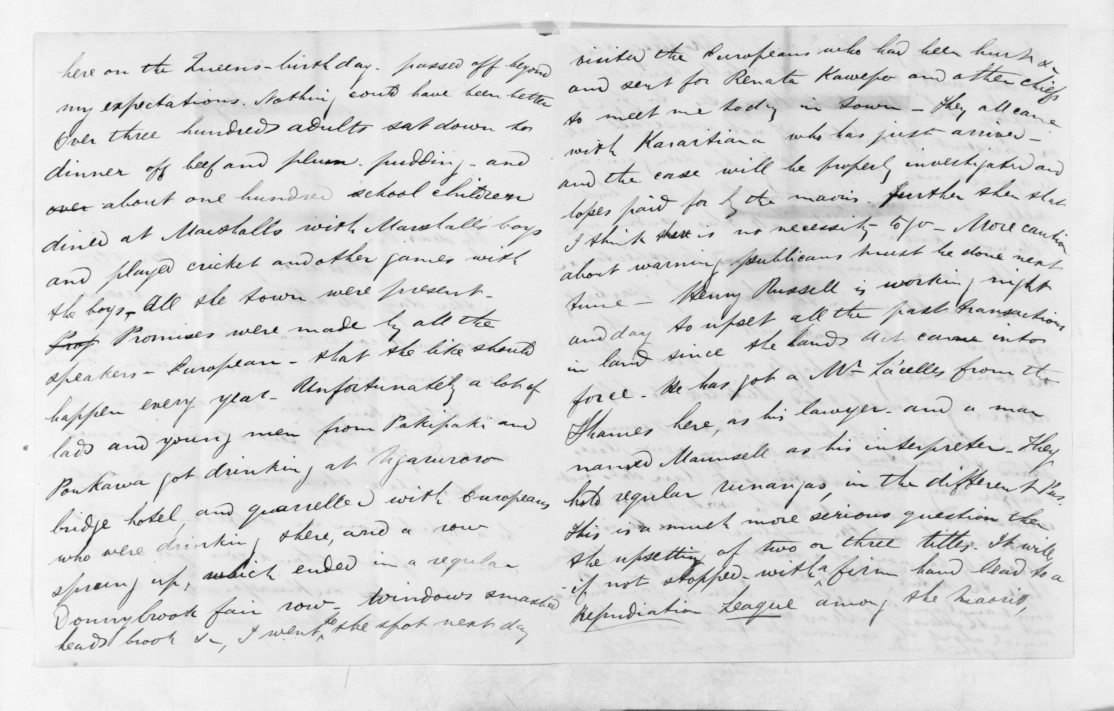 here on the Queens-birthday. passed off beyond
my expectations. Nothing could have been better
Over three hundred adults sat down to
dinner off beef and plum-pudding. and
over about one hundred school children
dined at Marshalls with Marshalls boys
and played cricket and other games with
the boys. All the town were present-
Prof Promises were made by all the
speakers - European - that the like should
happen every year. Unfortunately a lot of
lads and young men from Pakipaki and
Poukawa got drinking at Ngaruroro
bridge hotel, and quarelled with Europeans
who were drinking there, and a row
sprung up, which ended in a regular
Donnybrook fair row - windows smashed
heads brook &c, I went to the spot next day
visited the Europeans who had been hurt &c
and sent for Renata Kawepo and other chiefs
to meet me today in town - They all came
with Karaitiana who has just arrived -
and the case will be properly investigated and
lopes paid for by the maoris. further then that
I think there is no necessity to go - More caution
about warning publicans must be done next
time - Henry Russell is working night
and day to upset all the past transactions
in land since the Lands Act came into
force - he has got a Mr Lacelles from the
Thames here, as his lawyer. and a man
named Maunsell as his interpreter - They
hold regular runangas, in the different Pas.
This is a much more serious question then
the upsetting of two or three titles. It will,
if not stopped - with a firm hand lead to a
Repudiation League among the maoris,